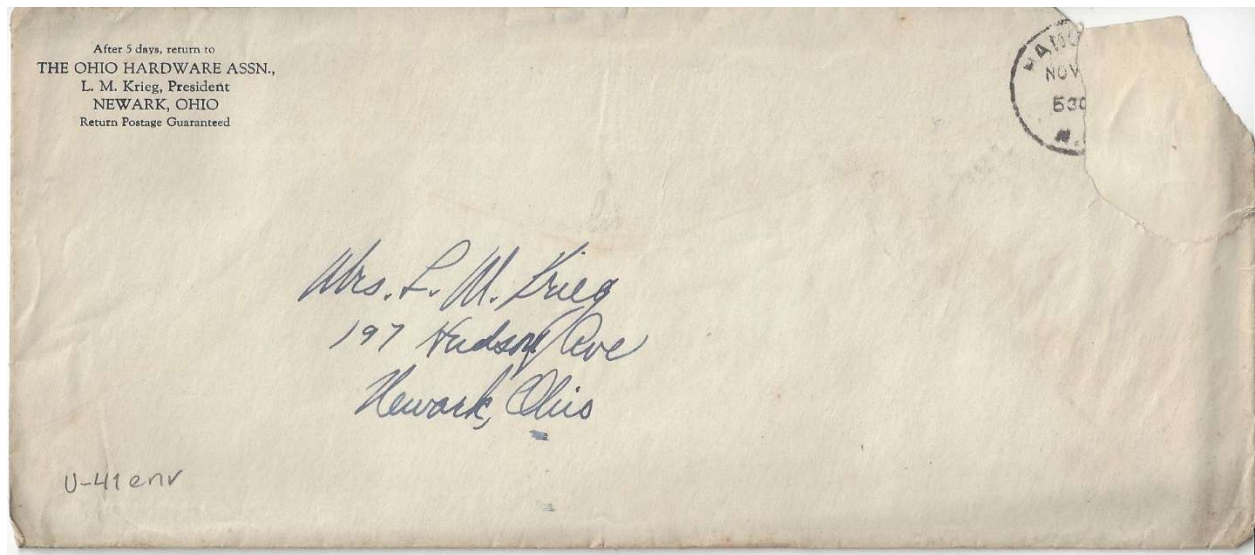 After 5 days, return to
THE OHIO HARDWARE ASSN.,
L. M. Krieg, President
NEWARK, OHIO
Return Postage Guaranteed
NOV
530
Mrs. L. M. Krieg
197 Hudson Ave
Newark, Ohio
U-41 env